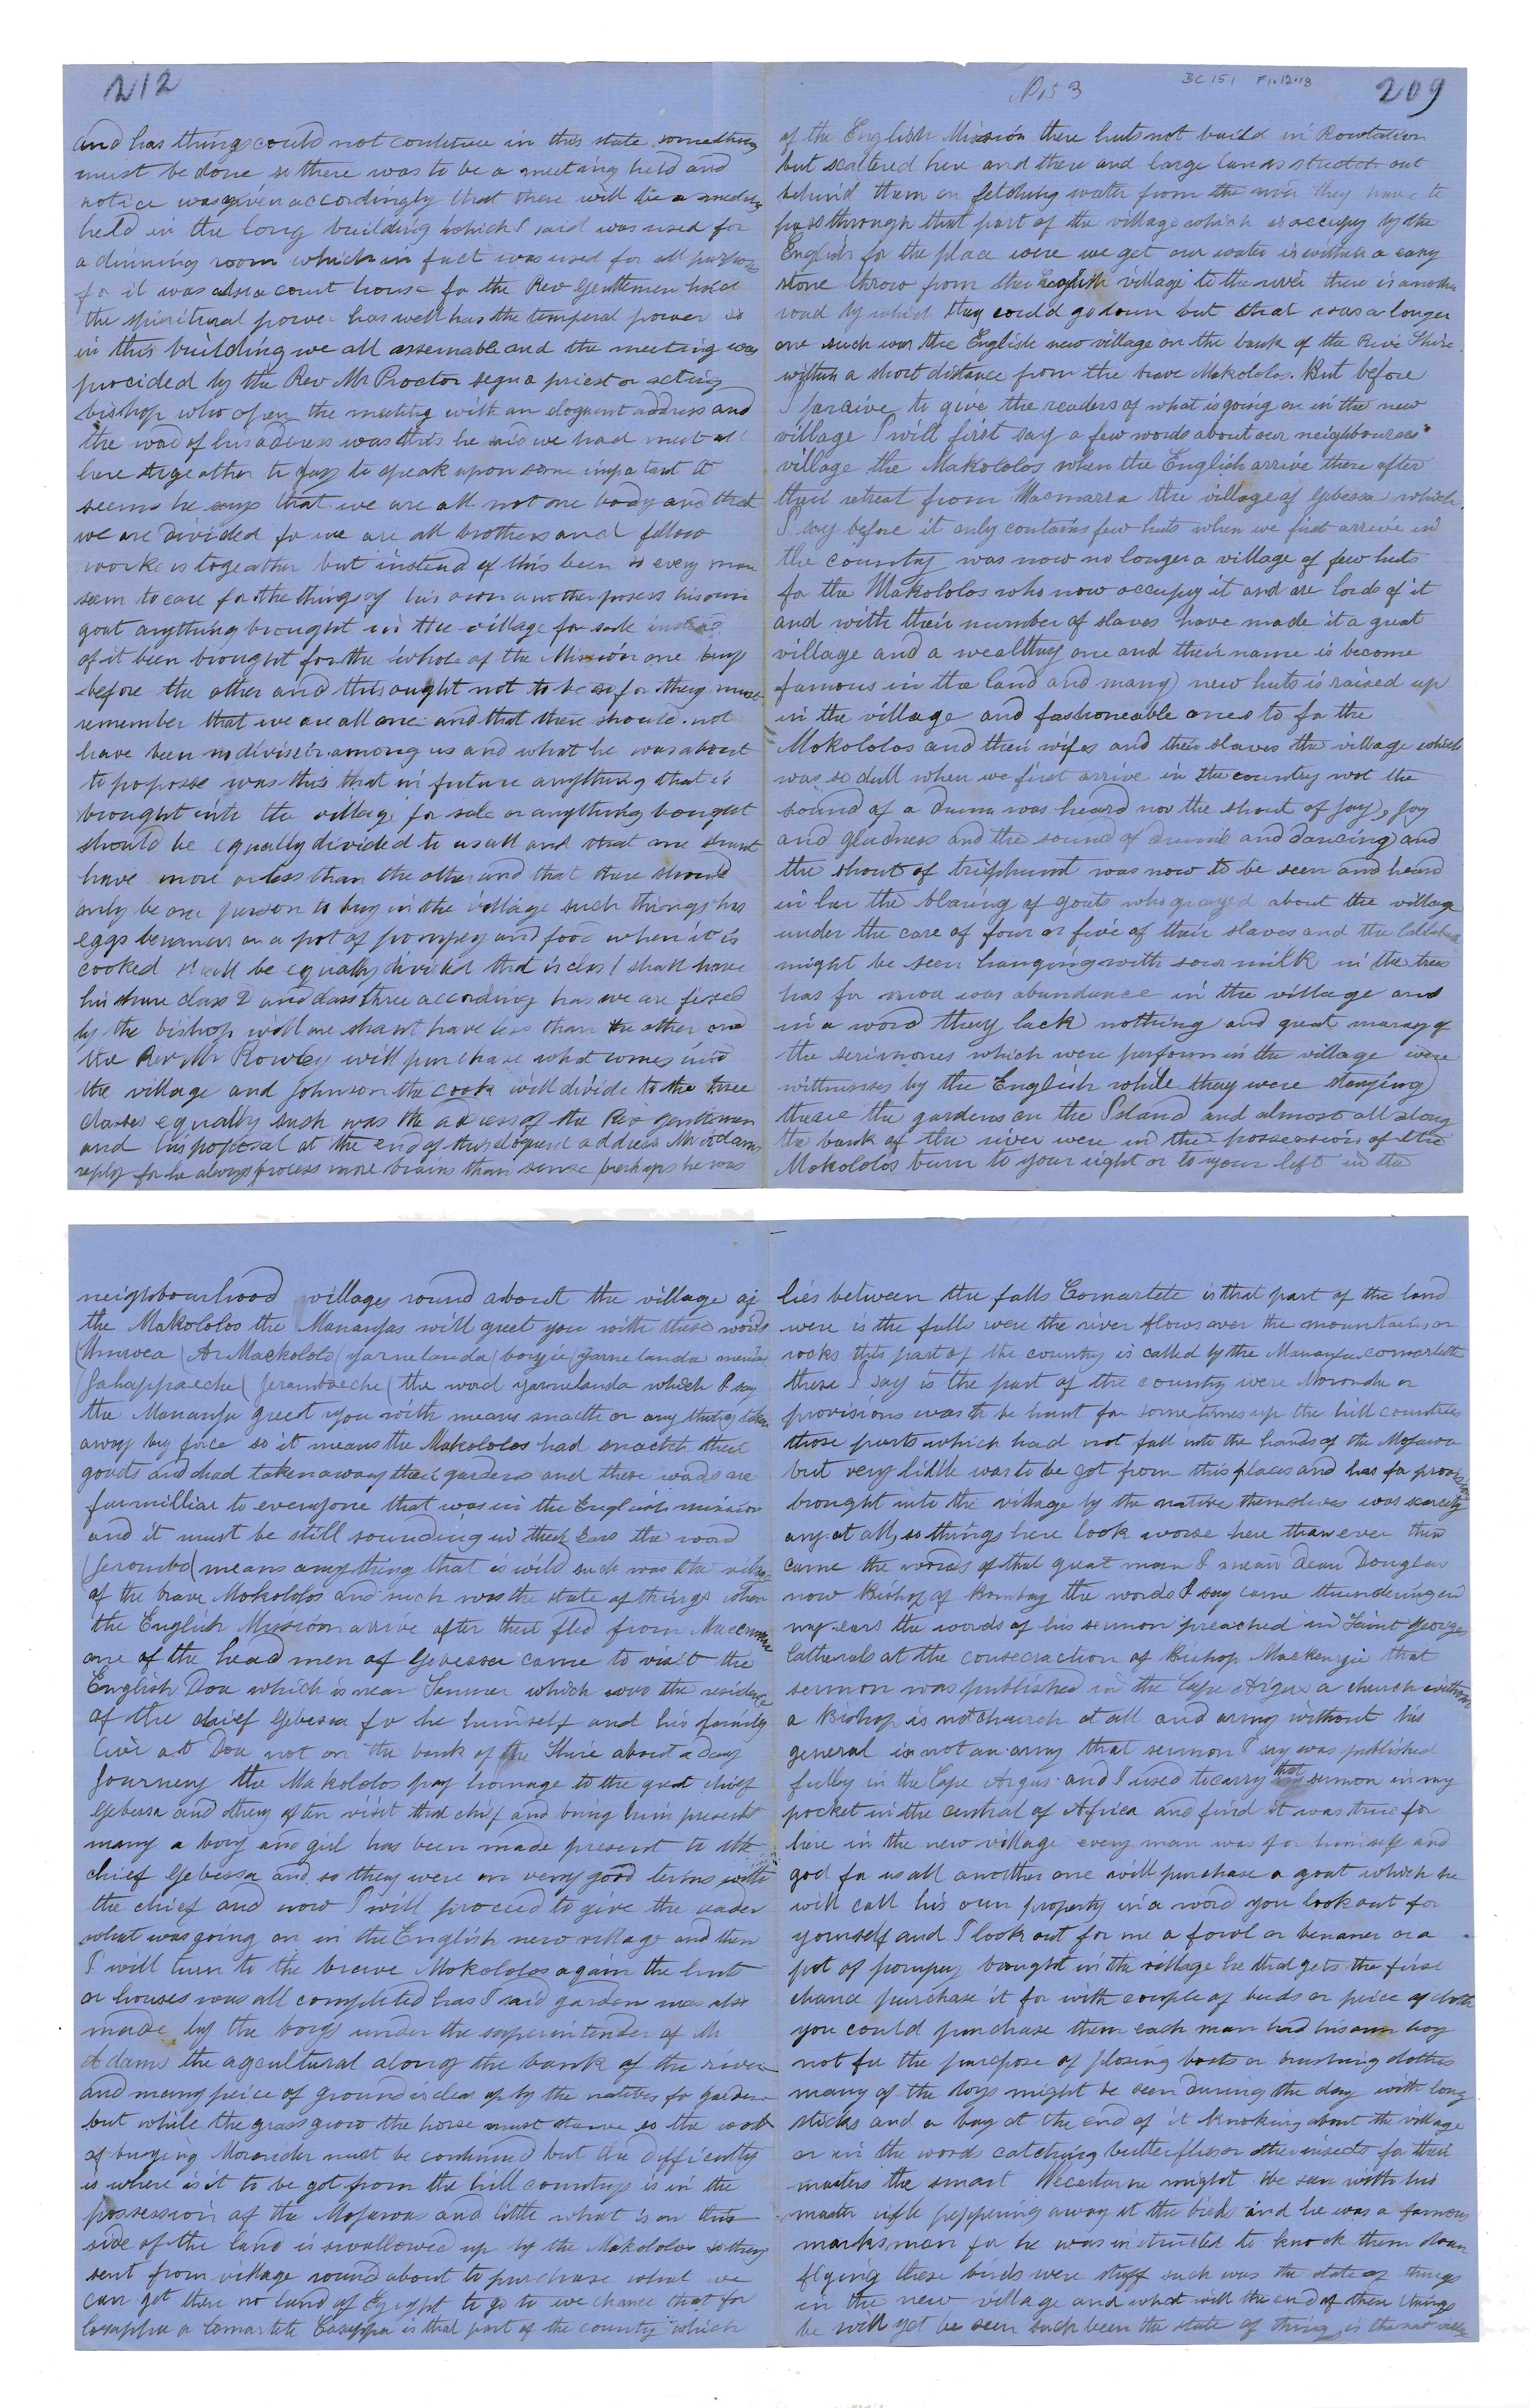 BC 151 F1.12.18
209
of the English Mission there huts not build in Rowtation
but scattered here and there and large lands stretch out
behind them on fetching water from the river they have to
pass through that part of the village which is occupy by the
English for the place were we get our water is within a easy
stone throw from the English village to the river there is another
road by which they could go down but that was a longer
one such was the English new village on the bank of the River Shire
within a short distance from the brave Makololos. But before
I to give the readers of what is going on in the new
village I will first say a few words about our neighbourers
village the Makololos when the English arrive there after
their retreat from the village of Gebessa which
I say before it only contains few huts when we first arrive in
the country was now no longer a village of few huts
for the Makololos who now occupy it and are lords of it
and with their number of slaves have made it a great
village and a wealthy one and their name is become
famous in the land and many new huts is raised up
in the village and fashoneable ones to for the
Mokololos and their wifes and their slaves the village which
was so dull when we first arrive in the country not the
sound of a drum was heard nor the shout of joy, joy
and gladness and the sound of drums and dancing and
the shout of triphumt was now to be seen and heard
in her the blaring of goats who grazed about the village
under the care of four or five of their slaves and the callabash
might be seen hanging with sour milk in the trees
has for was abundance in the village and
in a word they lack nothing and great maney of
the serimones which were perform in the village were
wittnesses by the English while they were staying
there the gardens on the Island and almost all along
the bank of the river were in the possession of the
Mokololos turn to your right or to your left in the
neighbourhood villages round about the village of
the Makololos the Mananjas will greet you with these words
(Ar Mackololo (yarnelanda (boyjie (yarne landa
(the word yarnelanda which I say
the Mananja greet you with means snacth or any thing taken
away by force so it means the Makololos had snactch their
goods and had taken away their gardens and these words are
farmilliar to everyone that was in the English mission
and it must be still sounding in their Ears the word
(Jerombo( means anything that is wild such was the village
of the brave Mokololos and such was the state of things when
the English Mission arrive after their fled from
one of the head men of Gebessa came to visit the
English Doa which is near which was the residence
of the chief Gebessa for he himself and his family
live at Doa not on the bank of the Shire about a day
Journey the Makololos pay homage to the great chief
Gebessa and they often visit that chief and bring him present
many a boy and girl has been made present to the
chief Gebessa and so they were on very good terms with
the chief and now I will proceed to give the reader
what was going on in the English new village and then
I will turn to the brave Mokololos again the huts
or houses was all completed has I said garden was also
made by the boys under the superintender of Mr
Adams the agcultural along the bank of the river
and many peice of ground is clear up by the natives for garden
but while the grass grow the horse must starve so the work
of buying Morander must be continued but the difficulty
is where is it to be got from the hill countrys is in the
possession of the Mojawas and little what is on this
side of the land is swallowed up by the Makololos so they
sent from village round about to purchase what we
can get there no land of Egeypt to go to we chance that for
or Comartete is that part of the country which
lies between the falls Comartete is that part of the land
were is the falls were the river flows over the mountains or
rocks this part of the country is called by the Mananja comartette
these I say is the part of the country were Moronda or
provisions was to be hunt for sometimes up the hill countries
those parts which had not fall into the hands of the Mojawa
but very little was to be got from this places and has for provision
brought into the village by the native themselves was scarcely
any at all, so things here look worse here than ever then
came the words of that great man I mean dean Douglas
now Bishop of Bombay the words I say came thundering in
my ears the words of his sermon preached in Saint Georges
Catherals at the consecraction of Bishop Mackenzie that
sermon was published in the Cape Argus a church without
a Bishop is not church at all and army without his
general is not an army that sermon I say was published
fulley in the Cape Argus and I used to carry that sermon in my
pocket in the central of Africa and find it was true for
here in the new village every man was for himself and
god for us all another one will purchase a goat which he
will call his own property in a word you look out for
yourself and I look out for me a fowl or benaner or a
pot of pompey brought in the village he that gets the first
chance purchase it for with couple of beads or peice of cloth
you could purchase them each man had his own boy
not for the purepose of boots or brushing clothes
many of the boys might be seen during the day with long
sticks and a bag at the end of it knoking about the village
or in the woods catching butterflies or other insects for their
masters the smart might be seen with his
master rifle peppering away at the birds and he was a famous
marksman for he was instructed to knock them down
flying these birds were stuff such was the state of things
in the new village and what will the end of these things
be will yet be seen such been the state of thing in the new village
212
and has things could not continue in this state something
must be done so there was to be a meeting held and
notice was given accordingly that there will be a meeting
held in the long building which I said was used for
a dinning room which in fact was used for all purposes
for it was also a court house for the Rev Gentlemen hold
the spiritural power has well has the temperal power so
in this building we all assemable and the meeting was
precided by the Rev Mr Proctor a priest or acting
bishop who open the meeting with an eloquent address and
the word of his address was this he said we had meet all
here togeather to day to speak upon some importent it
seems he says that we are all not one body and that
we are divided for we are all brothers and fellow
workers togeather but instead of this been so every man
seem to care for the things of his own another posess his own
goat anything brought in the village for sale instead
of it been brought for the whole of the Mission one buys
before the other and this ought not to be so for they must
remember that we are all one and that there should not
have been no diviseion among us and what he was about
to poposse was this that in future anything that is
brought into the village for sale or anything bought
should be equally divided to us all and that one shant
have more or less than the other and that there should
only be one person to buy in the village such things has
eggs or a pot of pompey and food when it is
cooked shall be equally divided that is clas 1 shall have
his share class 2 and class three according has we are fixed
by the bishop will one shant have less than the other and
the Rev Mr Rowley will purchase what comes into
the village and Johnson the cook will divide to the three
classes equally such was the adress of the Rev gentleman
and his poposal at the end of this eloquent address Mr Adams
reply for he always process more brains than sense perhaps he was